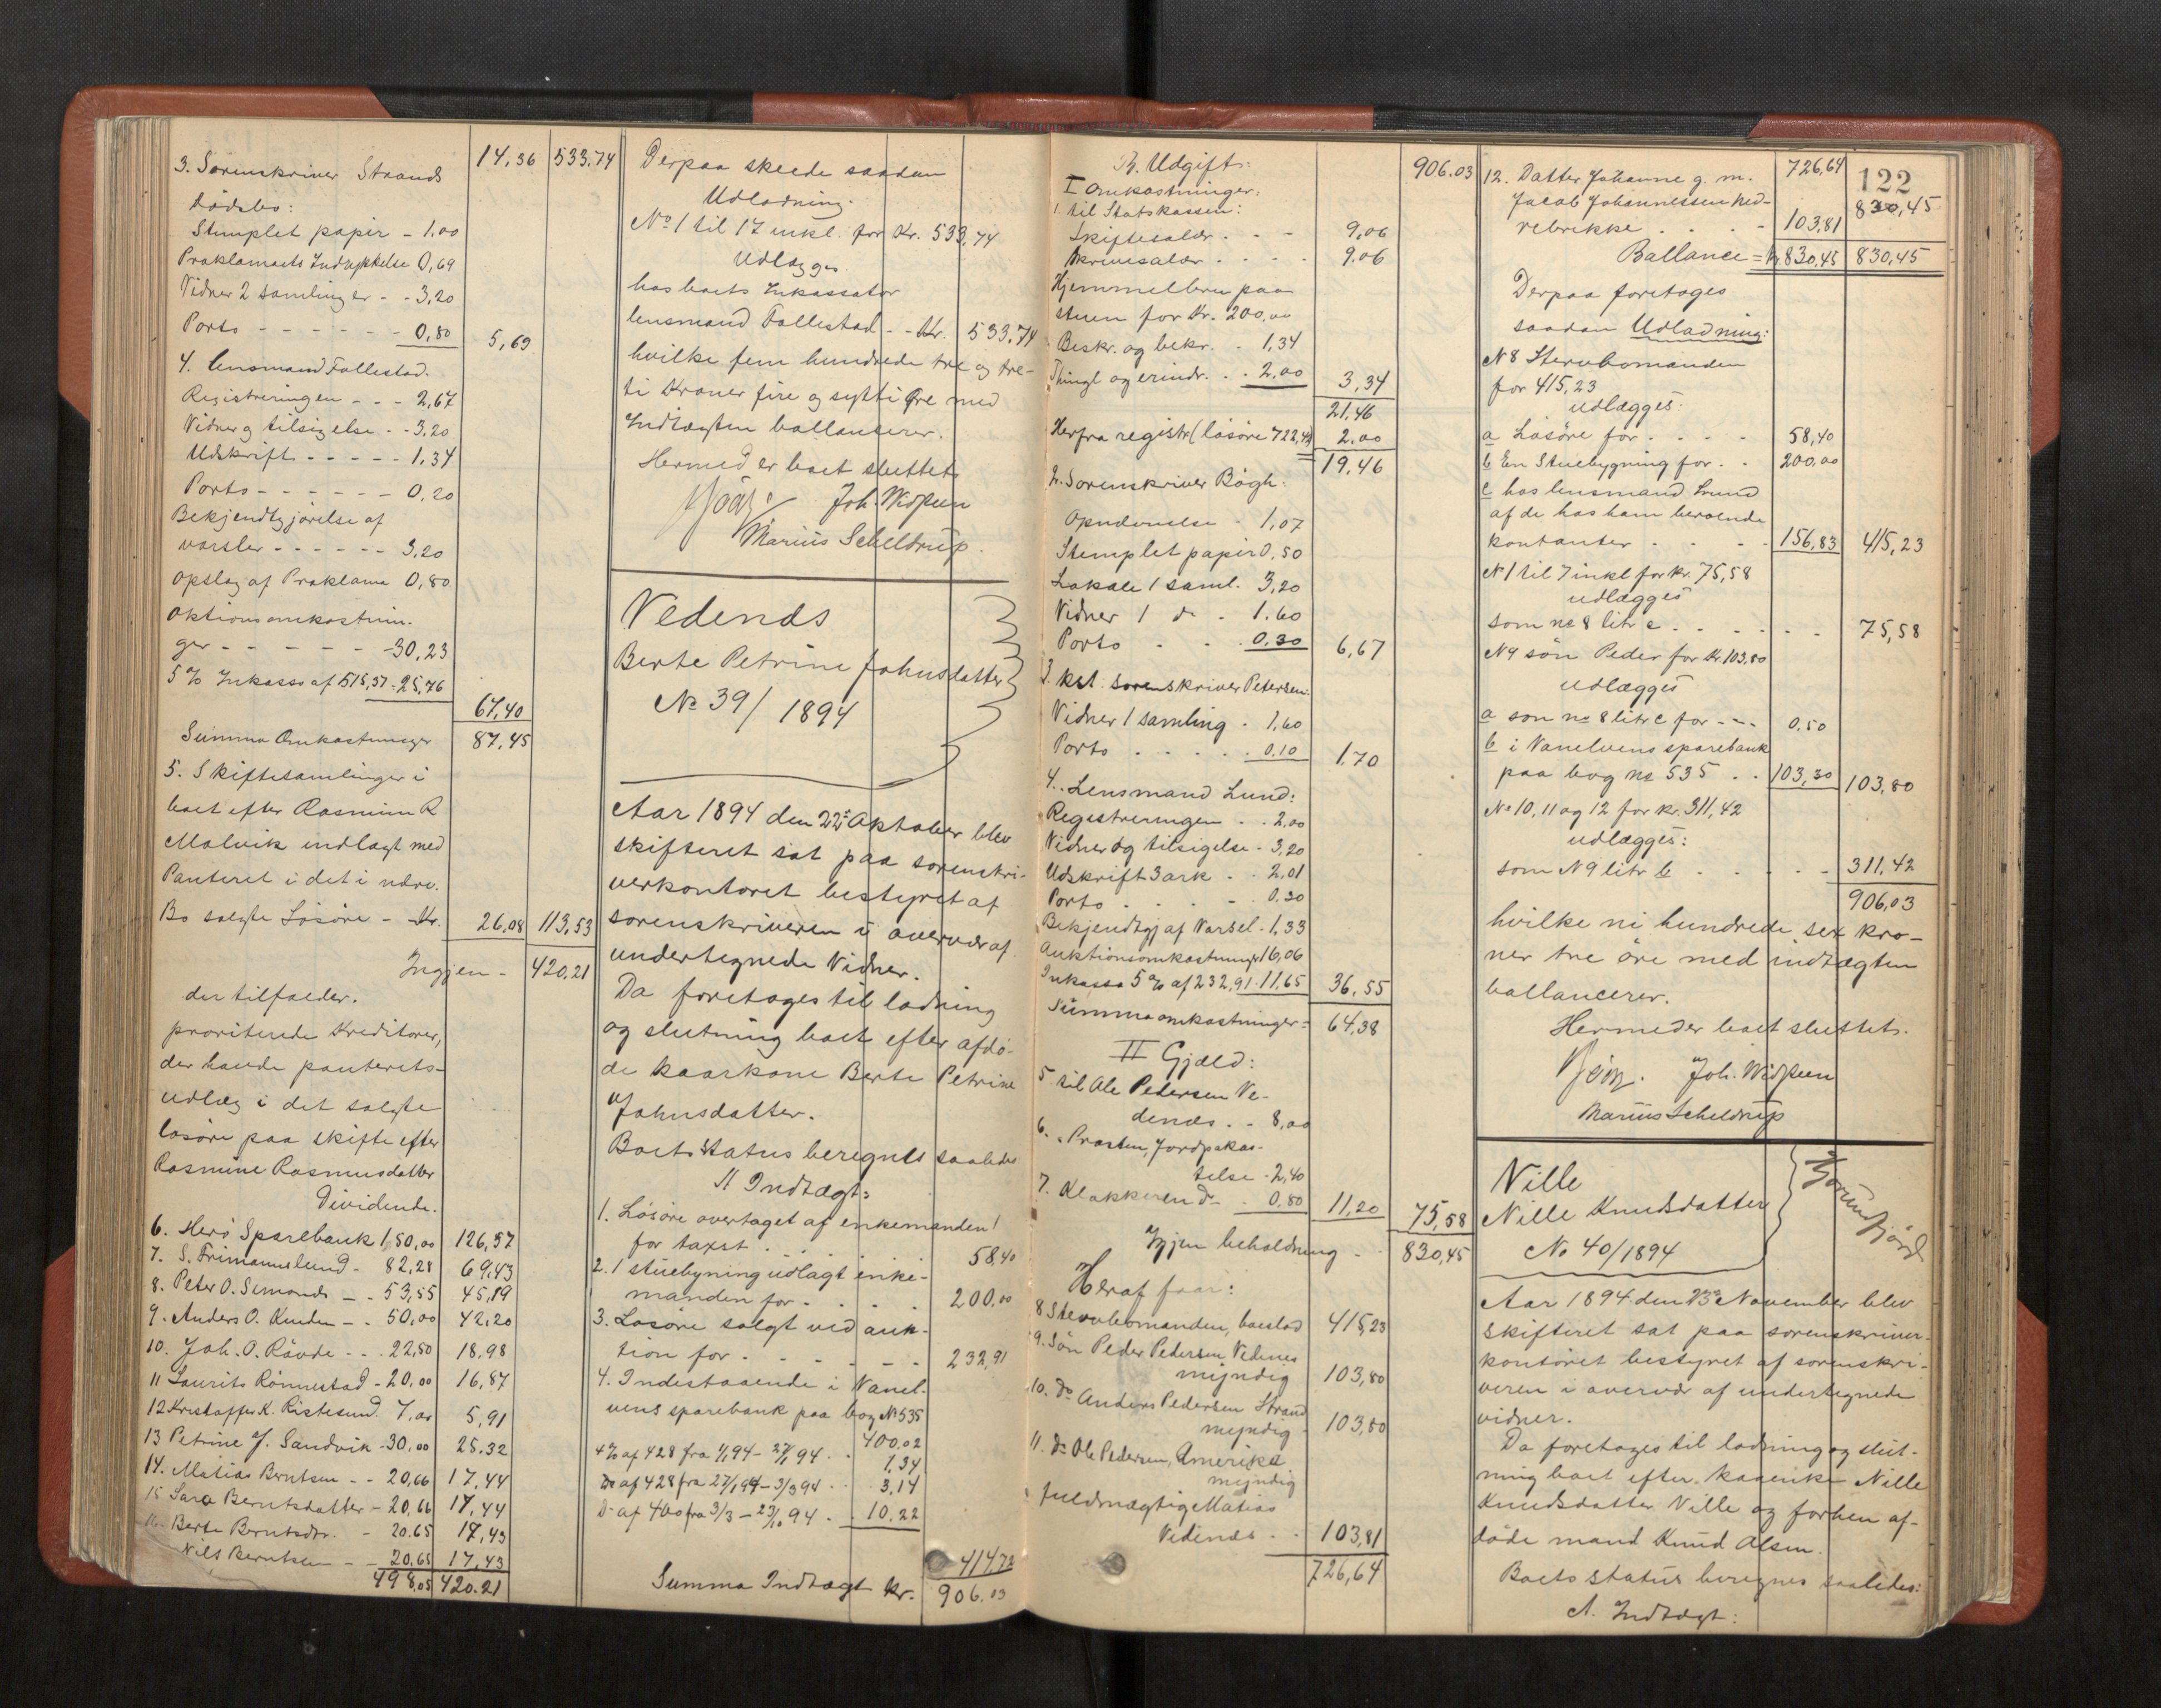 14,36 533,74
3. Sorenskriver Strands
dødsbo:
Stemplet papir - 1.00
Proklamaets Indrykkelse 0,69
Vidner 2 samlinger - - 3,20
Porto - - - - - - 0,80 5,69
4. lensmand Follestad.
Registreringen - - - 2,67
Vidner og tilsigelse - - 3,20
Udskrift - - - - - 1,34
Porto - - - - - - 0,20
Bekjendtgjørelse af
varsler - - - - - - 3,20
Opslag af Proklama 0,80
Aktionsomkostnin-
ger - - - - - - 30,23
5 % Inkasso af 515,37 = 25,76
67,40
Summa Omkostninger 87,45
5. Skiftesamlinger i
boet efter Rasmine R
Malvik indlagt med
Panteret i det i nærv.
Bo solgte Løsøre - - Kr. 26,08 113,53
Igjen - 420,21
der tilfalder.
proriterede Kreditorer,
der havde panterets-
udlæg i det solgte
løsøre paa skifte efter
Rasmine Rasmusdatter
Dividende.
6. Herø Sparebank 150,00 126,57
7. S. Frimannslund - 82,28 69,43
8. Peter O. Simonds - . 53,55 45,19
9. Anders O. Knuden - . 50,00 42,20
10. Joh. O. Røvde - - . 22,50 18,98
11 Laurits Rønnestad - 20,00 16,87
12 Kristoffer K. Ristesund. 7,00 5,91
13 Petrine J. Sandvik - 30,00 25.32
14. Matias Berntsen - - 20,66 17,44
15 Sara Berntsdatter - 20,66 17,44
16. Berte Berntsdtr. - 20.65 17,43
Nils Berntsen - - 20,65 17,43
498,05 420.21
Derpaa skeede saadan
Udlodning.
No 1 til 17 inkl. for Kr. 533,74
Udlægges
hos boets Inkassator
lensmand Follestad - - Kr. 533,74
hvilke fem hundrede tre og tre-
ti Kroner fire og sytti Øre med
Indtægten ballancerer.
Hermed er boet sluttet.
Joh. Widsteen
Marius Scheldrup.
Vedenæs
Berte Petrine Johnsdatter
No 39/1894
Aar 1894 den 22de Oktober blev
skifteret sat paa sorenskri-
verkontoret bestyret af
sorenskriveren i overvær af
undertegnede Vidner.
Da foretoges til lodning
og slutning boet efter afdø-
de kaarkone Berte Petrine
Johnsdatter.
Boets Status beregnes saaledes
A Indtægt:
1. Løsøre overtaget af enkemanden
for taxst . . . . . 58,40
2. 1 stuebyning udlagt enke-
manden for . . . . 200,00
3. Løsøre solgt ved auk-
tion for . - - - - - 232,91
4. Indestaaende i Vanel-
vens sparebank paa bog No 535
400,02
4 % af 428 fra 1/1 94 - 27/1 94 . . 1,34
Do af 428 fra 27/1 94 - 3/3 94 . . 3,14
Do af 400 fra 3/3 - 23/10 94 . . 10.22
414,72
Summa Indtægt kr. 906,03
B. Udgift: 906.03
I Omkostninger:
1. til Statskassen:
Skiftesalær . - - 9,06
Skrivesalær . . . . 9.06
Hjemmelbrev paa
stuen for Kr. 200,00
Beskr. og bekr. . 1,34
Thingl og erindr. . . 2,00 3,34
21,46
Herfra registr (løsøre 722,42) 2.00
19,46
2. Sorenskriver Bøgh:
Opnævnelse . 1,07
Stemplet papir 0,50
Lokale 1 saml. 3,20
Vidner 1 do . 1.60
Porto . . . 0.30 6,67
3. kst. sorenskriver Petersen:
Vidner 1 samling . 1,60
Porto . . . . . 0.10 1.70
4. Lensmand Lund:
Registreringen . . 2,00
Vidner og tilsigelse - 3,20
Udskrift 3 ark . . 2,01
Porto . . . . - . 0.30
Bekjendtgj af Varsel - 1,33
Auktionsomkostninger 16,06
Inkasso 5 % af 232,91 . 11,65 36,55
Summa omkostninger = 64,38
II Gjæld:
5. til Ole Pedersen Ve-
denæs . - 8,00
6. . Præsten, Jordpaakas-
telse - 2,40
7. Klokkeren do - 0,80 11,20 75,58
Igjen beholdning . . 830,45
Heraf faar:
8. Stervbomanden, boeslod 415,23
9. Søn Peder Pedersen Vedenes
myndig 103,80
10. do Anders Pedersen Strand
myndig - 103,80
11. do Ole Pedersen, Amerika
myndig
fuldmægtig Matias
Vedenæs - . 103,81
726,64
122
12. Datter Johanne g. m. 726,64
Jacob Johannessen Ned-
830,45
rebrikke . . . . 103,81
Ballance = Kr 830,45 830,45
Derpaa foretoges
saadan Udlodning:
N 8 Stervbomanden
for 415,23
udlægges:
a Løsøre for . - - - 58,40
b En Stuebygning for . . 200,00
c hos lensmand Lund
af de hos ham beroende
kontanter . . . . 156,83 415,23
N 1 til 7 inkl for kr. 75,58
udlægges
som no 8 litr c . . . . - - 75,58
N 9 søn Peder for Kr. 103,80
udlægges
a som no 8 litr c for - - - 0,50
b i Vanelvens sparebank
paa bog no 535 . . 103,30 103,80
No 10, 11 og 12 for kr. 311,42
udlægges:
som N 9 litr b . - - - - 311,42
906,03
hvilke ni hundrede sex kro-
ner tre øre med indtægten
ballancerer.
Hermed er boet sluttet.
Joh. Widsteen
Marius Scheldrup
Nille
Nille Knudsdatter
No 40/1894
Hjørundfjord
Aar 1894 den 23de November blev
skifteret sat paa sorenskriver-
kontoret bestyret af sorenskri-
veren i overvær af undertegnede
vidner.
Da foretoges til lodning og slut-
ning boet efter kaaenke Nille
Knudsdatter Nille og forhen af-
døde mand Knud Olsen.
Boets status beregnes saaledes:
A. Indtægt: